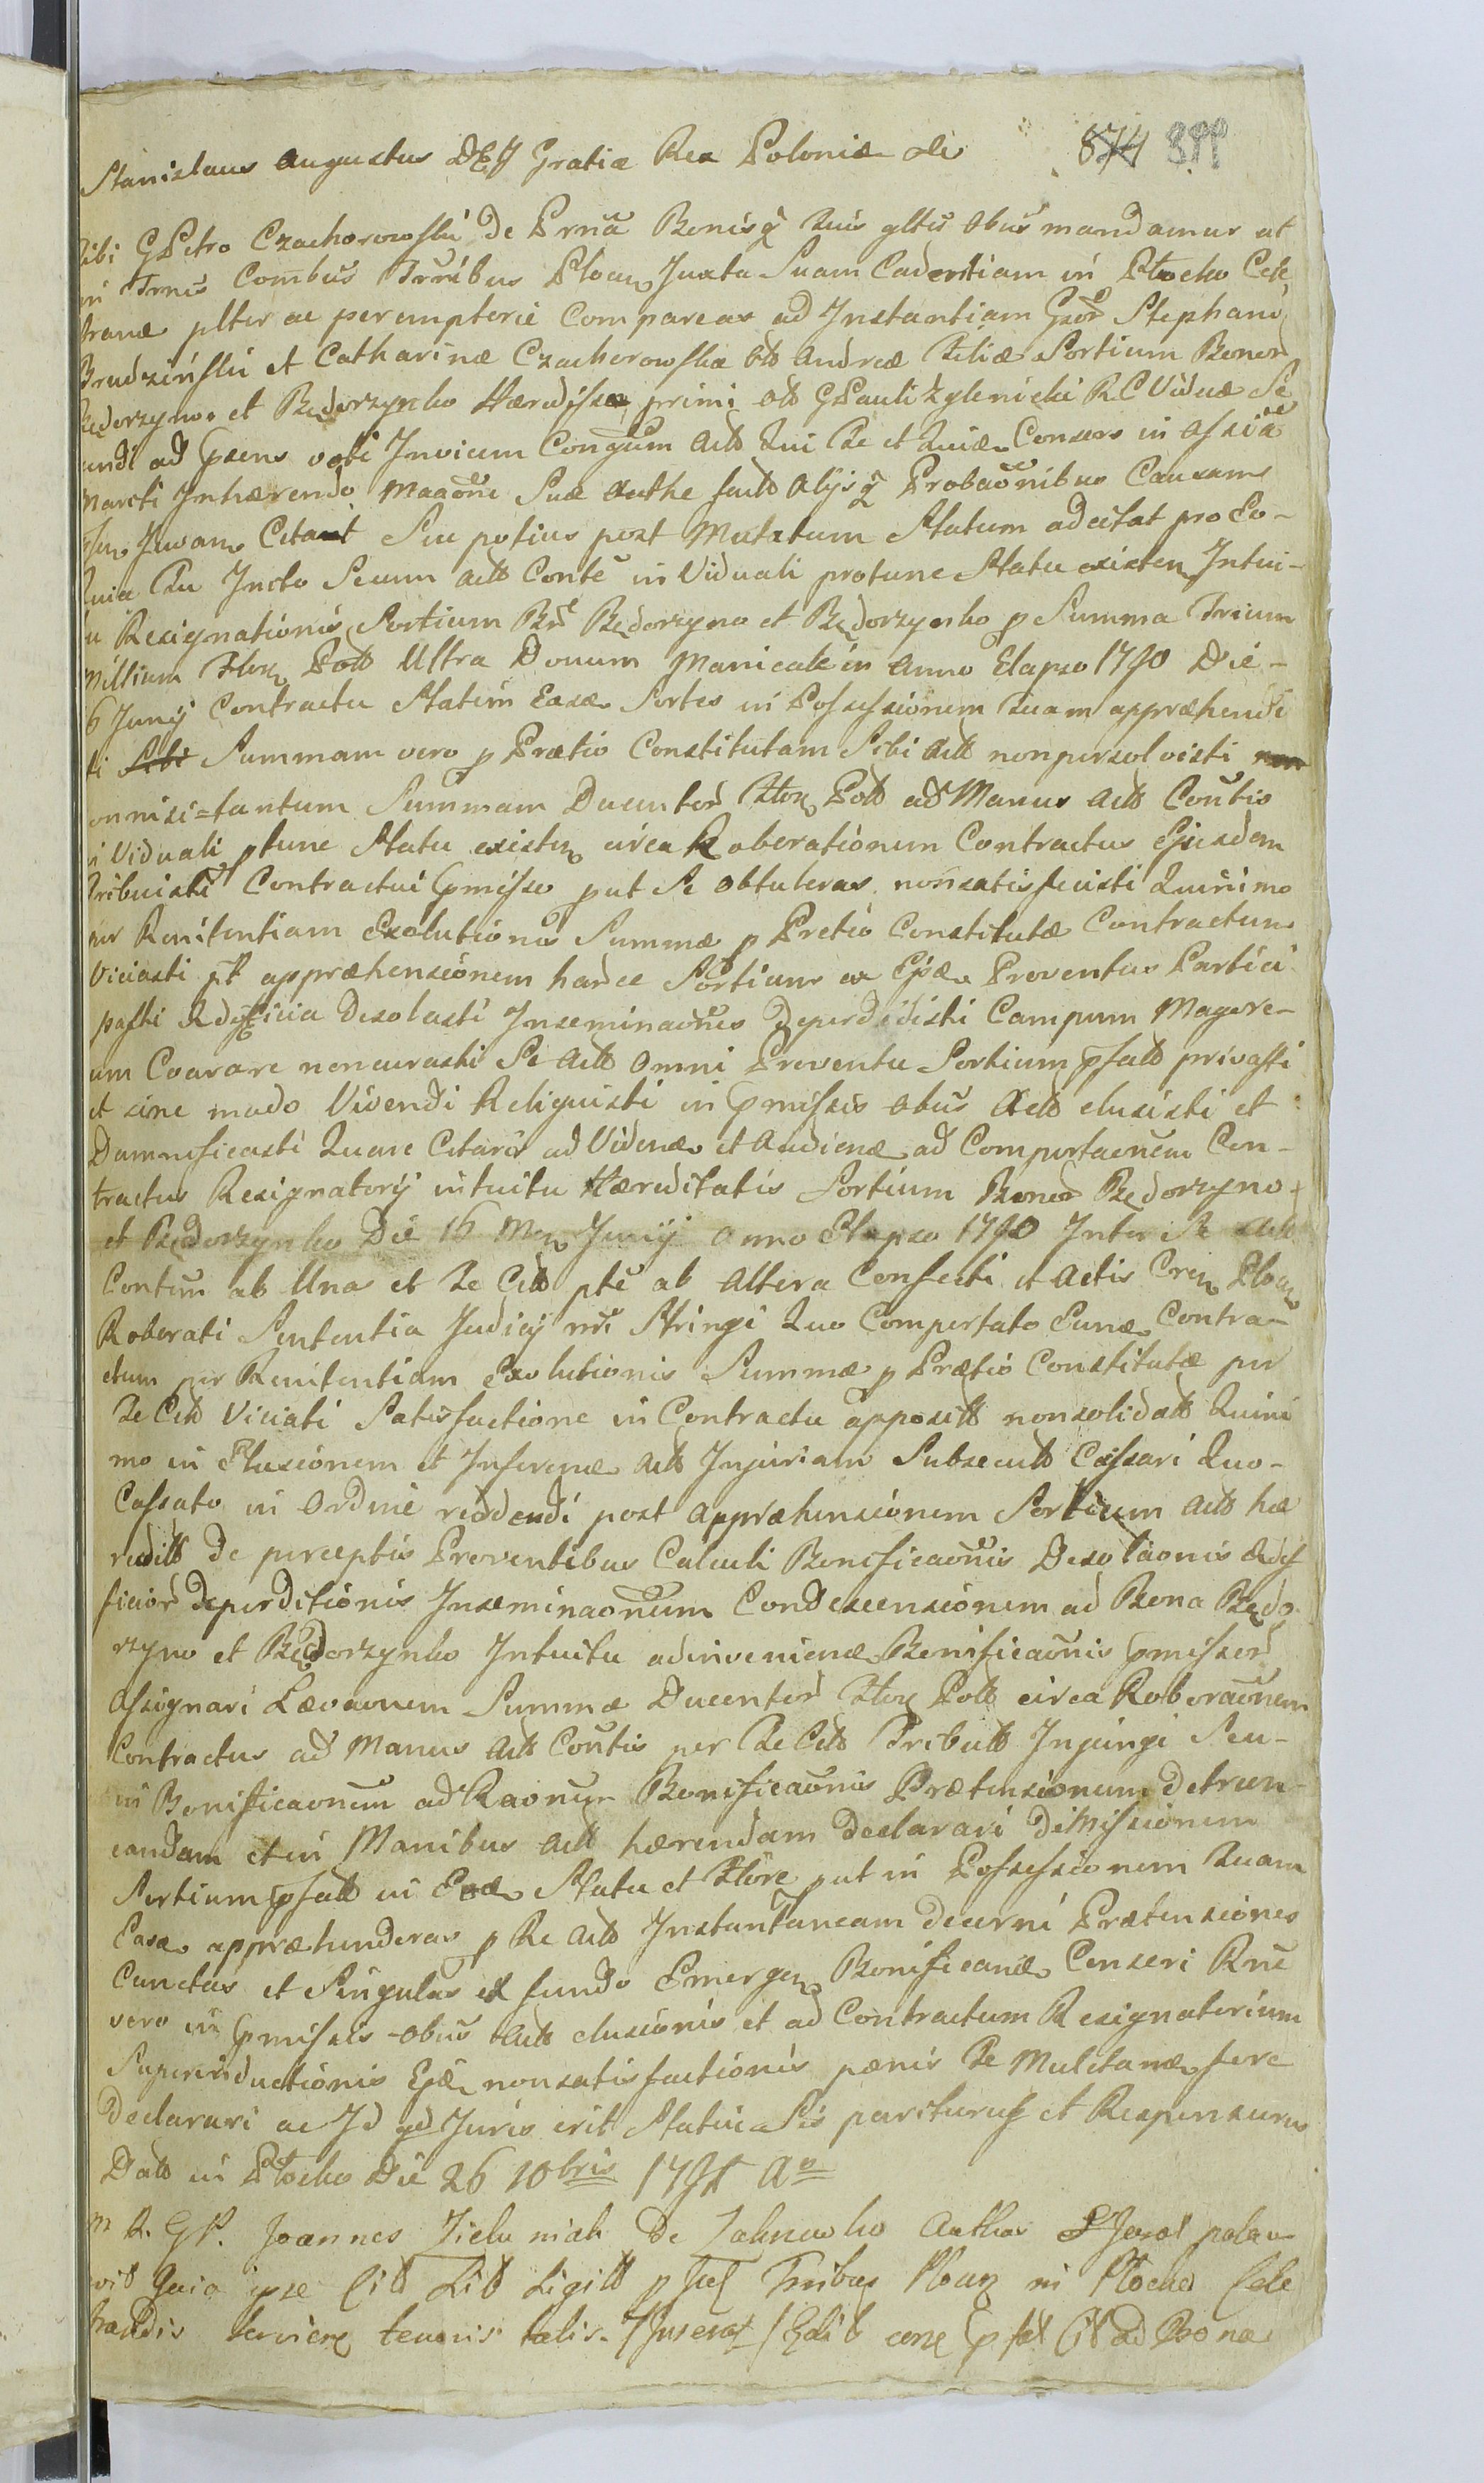 Stanislaus Augustus DEI Gratiæ Rex Poloniæ etc 874 899
Tibi G Petro Czachorowski De Prnã Bonisq̃ Tuis gltĩs Obũs mandamus ut
in Trnis Combus Trribus Plocen Juxta Suam Cadentiam in Płocko Cele
brane pltẽr ac peremptorie Compareas ad Instantiam Gsor Stephani
Brudziński et Catharinæ Czachorowska olt Andreæ Filiæ Sortium Bonor
Będorzyno et Będorzynko Hæredisse primi olt G Pauli Zglenicki R C Viduæ Se
cundi ad Gsens voti Invicem Congum Actt Qui Te et Quiæ Consers in Assiã
Marsti Inhærendo Maaõni Suæ Authe factt Alysq̃ Probaõnibus Causam
Juvan Citant Seu potius post Mutatum Statum adcitat pro Eo-
Quia Tu Incto Secum Actt Contẽ in Viduali protunc Statu existen Intui-
tu Resignationis Sortium Bñe Będorzyno et Będorzynko p Summa Trium
Millium Flor Poll Ultra Donum Manicale in Anno Elapso 1790 Die-
6 Junij Contractu Statim Easæ Sortes in Possessionem Tuam appræhendi
ti Sibi Summam vero p Prætio Constitutam Sibi Actt nonpersolvisti non
onnisi=tantum Summam Ducentor Flor Poll ad Manus Actt Coñtis
in Viduali ptunc Statu existen circa Roborationem Contractus Ejusdem
tribuisti Contractui Gmisso put Te Obtuleras nonsatisfecisti Quinimo
per Renitentiam Exolutionis Summæ p Pretio Constitutæ Contractum
Viciasti pt appræhensionem hance Sortium ex Ejsæ Proventus Partici
pasti Ædificia Desolasti Inseminaõnes Deperdidisti Campum Magere-
um Coarare noncurasti Se Actt Omni Proventu Sortium psatt privasti
et sine modo Vivendi Reliquisti in Gmissis Obũs Actt elusisti et
Damnificasti Quare Citaris ad Videnæ et Audienæ ad Comportaõnem Con-
tractus Resignatorij intuitu Hæreditatis Sortium Bonor Będorzyno
et Będorzynko Die 16 Men Junij Anno Elapso 1790 Inter Te Actt
Contem ab Una et Te Citt pte ab Altera Confecti et Actis Cren Plocen
Roborati Sententia Judicij nri Stringi Quo Comportato Eunæ Contra-
ctum per Renitentiam Exolutionis Summæ p Prætio Constitutæ per
Te Citt Viciati Satisfactione in Contractu apposit nonsolidatt Quini
mo in Elusionem et Inferenæ Actt Injuriam Subsecutt Cassari Quo-
Cassato in Ordine reddendi post Appræhensionem Sortium Actt hæ
reditt De perceptis Proventibus Calculi Bonificaõnis Desolaonis Ædif
ficior Deperditionis Inseminaonum Condescensionem ad Bona Będo
rzyno et Będorzynko Intuitu adinvenienæ Bonificaõnis Gmissor
Assignari Lævaonem Summæ Ducentor Flor Poll circa Roboraõnem
Contractus ad Manus Actt Coñtis per Te Citt Tributt Injungi Seu-
in Bonificaonem ad Raonem Bonificaõnis Prætensionum detrun-
candam et in Manibus Actt hærendam Declarari Dimissionem
Sortium psatt in Eoæ Statu et Flore put in Possessionem Tuam
Easæ appræhenderas p Te Actt Instantaneam decerni Prætensiones
Cunctas et Singulas ex fundo Emergen Bonificanæ Censeri Rne
vero in Gmissis Obũs Actt elusionis et ad Contractum Resignatorium
Superinductionis Ejsæ nonsatisfactionis pænis Te Mulctanæ fore
Declarari ac Id qd Juris erit Statui Sis pariturus et Responsurus
Datt in Płocko Die 26 10bris 1791 Ao
R. G P. Joannes Zielu niak De Author
vit Quia ipse Citt Lit Ligitt p Tribus Plocen in Płocko Cele
brandis tenoris talis.